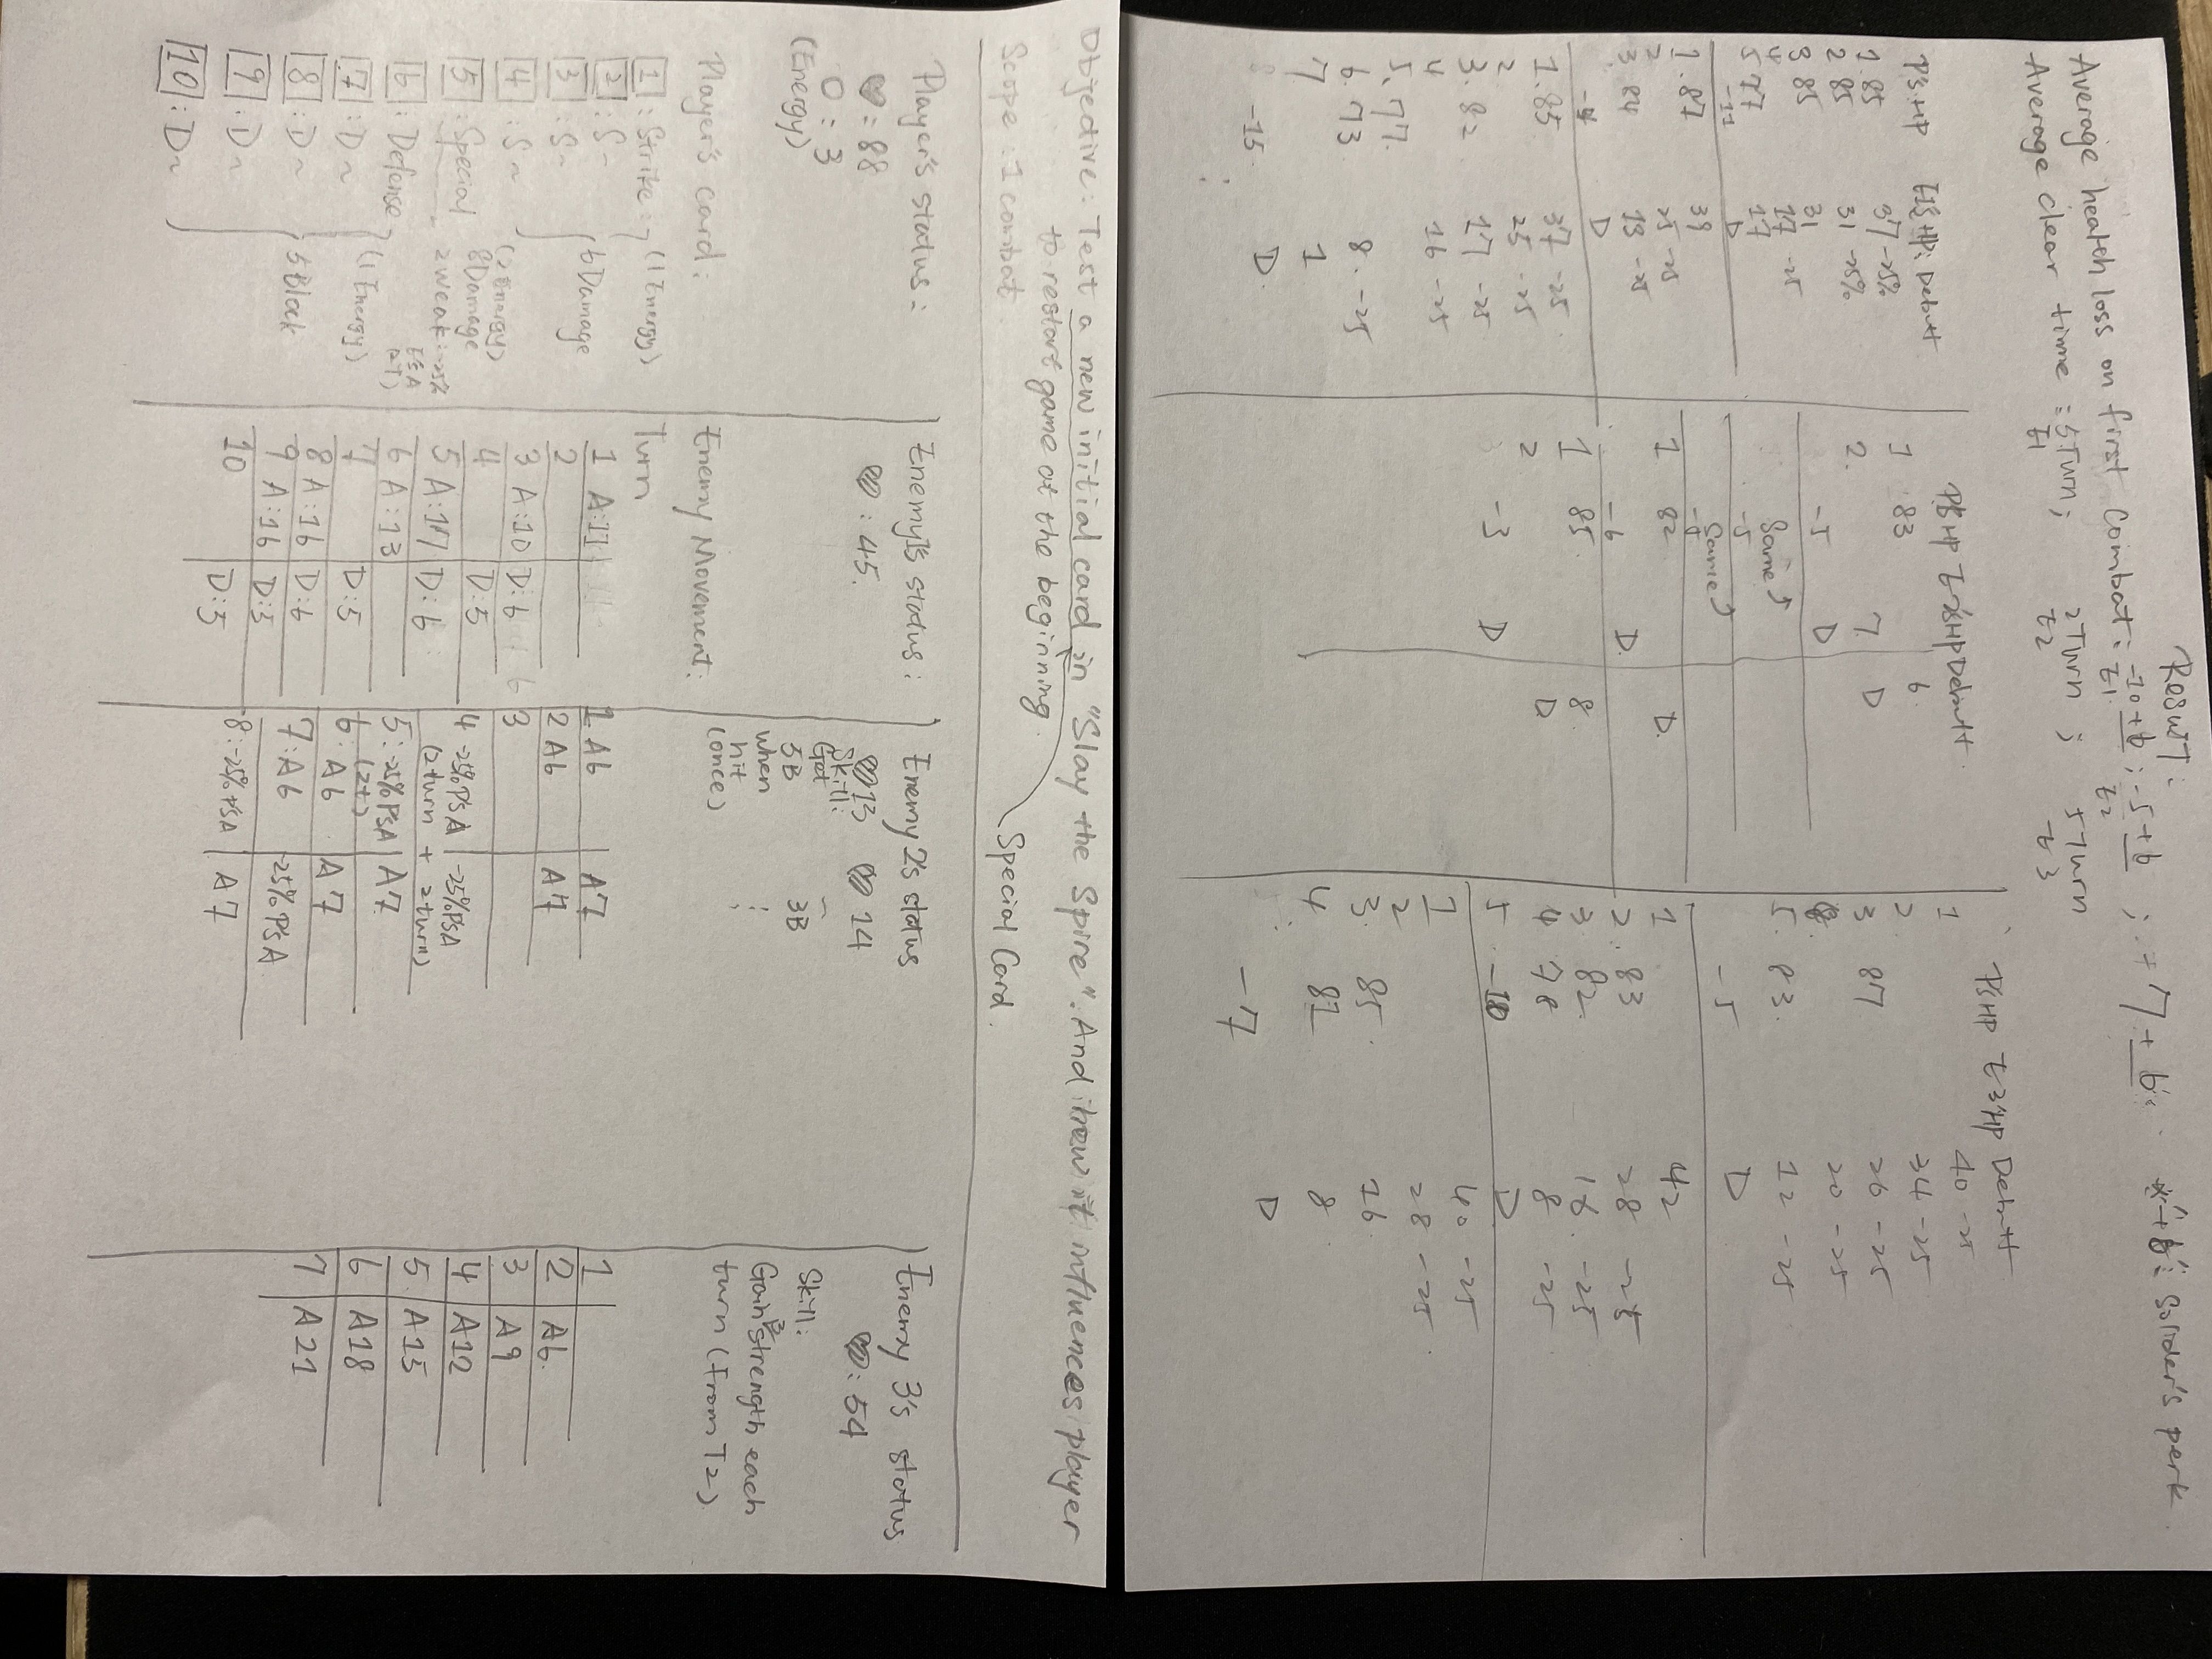 Result:
Average health loss on first combat: -10+6; -5+6; -7+6. "+6": Solider's perk.
E1 E2
Average clear time: 5 Turn; 2 Turn; 5 Turn
E1 E2 E3
P's HP E1's HP: Debuff
1. 85 37 -25%
2 85 31 -25%
3 85 31
4 17 -25
5 77 17
-11 D
1. 87 39
2 25 -25
3. 84 13 -25
D
1. 85 37 -25
2 25 -25
3. 82 17 -25
4 16 -25
5. 77.
6. 73 8. -25
7 1
8 -15. D.
P's HP E2's HP Debuff
1 83 6
2. 7 D
-5 D
Same
-5
Same
1 82 D.
-6 D.
1 85 8
2 D
-3 D
P's HP E3's HP Debuff
1 40 -25
2 34 -25
3 87 26 -25
20 -25
5. 83. 12 -25
-5 D
1 42
2. 83 28 -25
3 82. 16. -25
4 78 8 -25
5 -10 D
1 40 -25
2 28 -25
3. 85 16
4 81 8
D
-7
Objective: Test a new initial card in "Slay the Spire". And how it influences player
to restart game at the beginning.
Scope: 1 combat
Special Card.
Player's status:
♥: 88
O: 3
(Energy)
Player's card:
1: Strike (1 Energy)
2: S~
3: S~
4: S~
6 Damage
5: Special
(2 Energy)
8 Damage
2 weak: -25%
E's A
(2T)
6: Defense
7: D~
(1 Energy)
8: D~
5 Block
9: D~
10: D~
Enemy 1's status:
♥: 45.
Enemy Movement:
Turn
1 A:11
2
3 A:10 D:6
4 D:5
5 A:17 D:6
6 A:13
7 D:5
8 A:16 D:6
9 A:16 D:5
10 D:5
Enemy 2's status
♥13 ♥ 14
Skill:
Get ~
5B 3B
when :
hit :
(once)
1 A6 A7
2 A6 A7
3
4 -25% P's A -25% P's A
(2turn + 2turn)
5: -25% P's A A7
(2t)
6: A6 A7
7: A6 -25% P's A
8: -25% P's A A7
Enemy 3's status
♥: 54
Skill:
Gain 3 strength each
turn (From T2).
1
2 A6.
3 A9
4 A12
5. A15
6 A18
7 A21